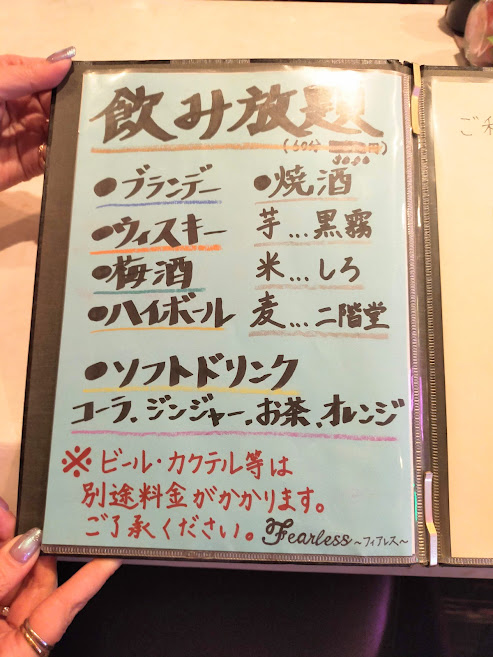 飲み放題
(60分 円)
3000
●ブランデー
●ウィスキー
●梅酒
●ハイボール
●焼酒
芋…黒霧
米…しろ
麦…二階堂
●ソフトドリンク
コーラ、ジンジャー、お茶、オレンジ
※ビール・カクテル等は
別途料金がかかります。
ご了承ください。
Fearless ~フィアレス~
ご利